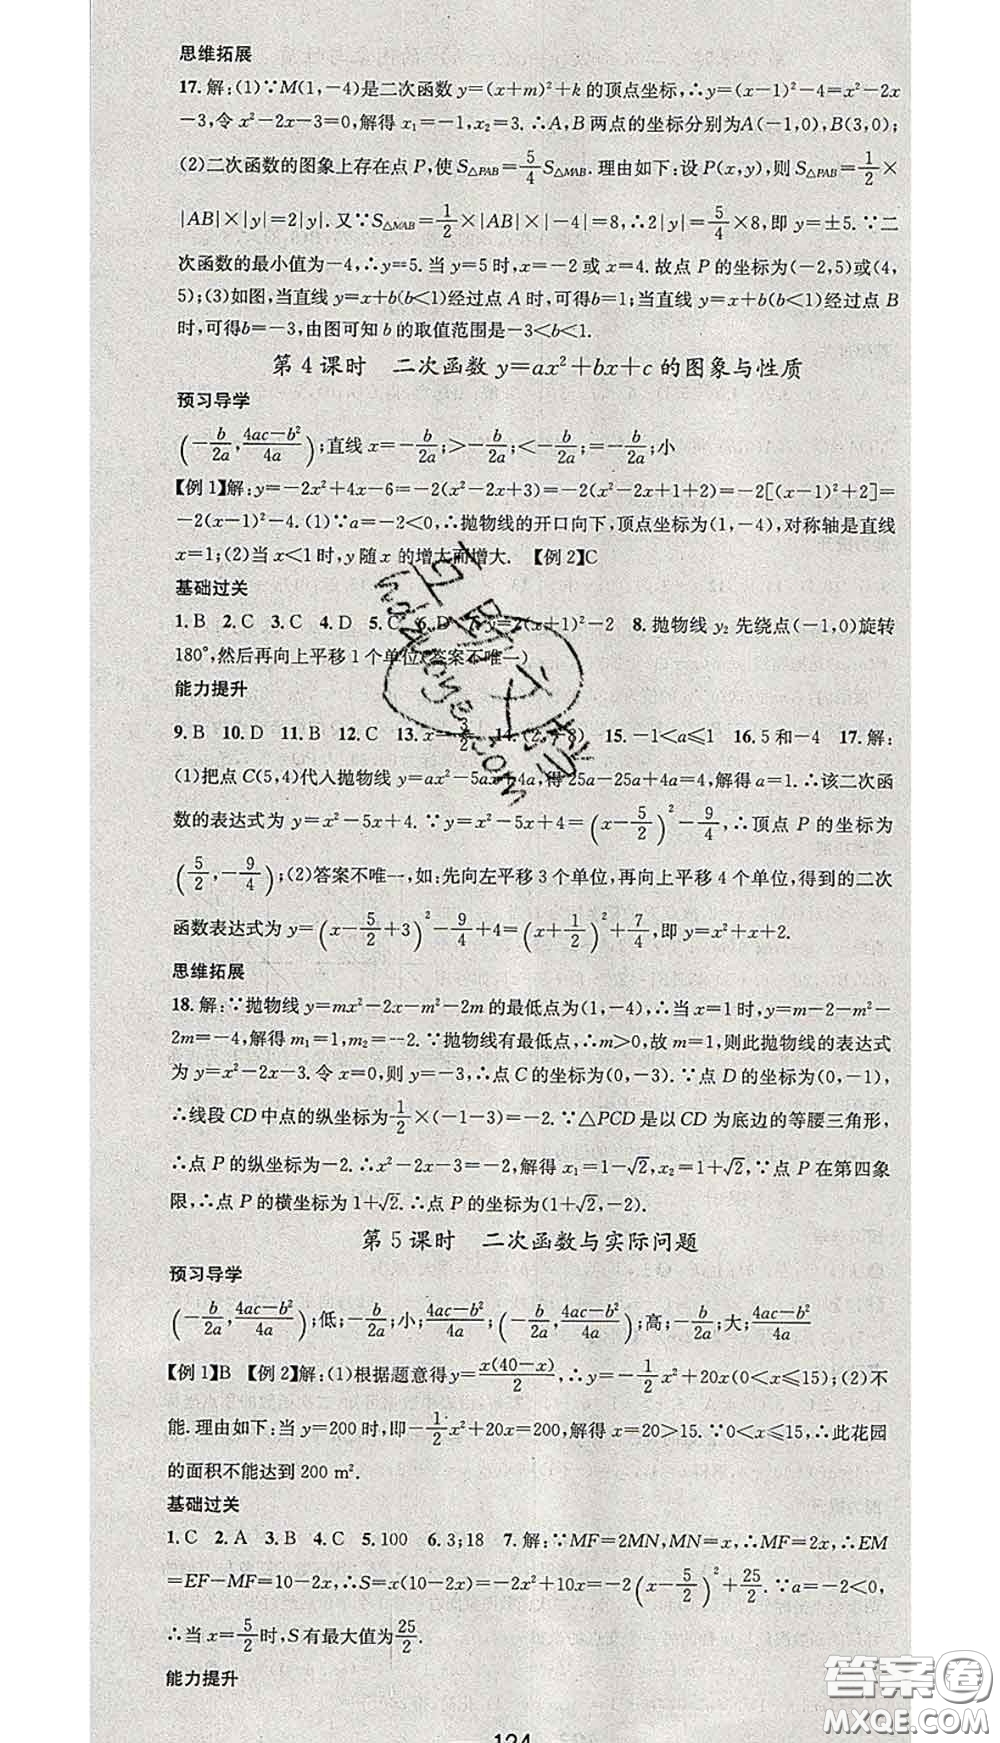 思维拓展
17.解:(1)∵M(1,-4)是二次函数 y=(x+m)²+k 的顶点坐标,∴y=(x-1)²-4=x²-2x
-3,令 x²-2x-3=0,解得 x₁=-1,x₂=3.∴A,B 两点的坐标分别为A(-1,0),B(3,0);
(2)二次函数的图象上存在点 P,使 S△PAB=5/4 S△MAB.理由如下:设 P(x,y),则 S△PAB=1/2×
|AB|×|y|=2|y|.又∵S△MAB=1/2×|AB|×|-4|=8,∴2|y|=5/4×8,即 y=±5.∵二
次函数的最小值为-4,∴y=5.当 y=5时,x=-2 或 x=4.故点 P 的坐标为(-2,5)或(4,
5);(3)如图,当直线 y=x+b(b<1)经过点 A 时,可得b=1;当直线 y=x+b(b<1)经过点 B
时,可得b=-3,由图可知 b 的取值范围是-3<b<1.
第 4 课时 二次函数 y=ax²+bx+c 的图象与性质
预习导学
(-b/2a,(4ac-b²)/4a);直线 x=-b/2a;>-b/2a;<-b/2a;=-b/2a;小
【例 1】解:y=-2x²+4x-6=-2(x²-2x+3)=-2(x²-2x+1+2)=-2[(x-1)²+2]=
-2(x-1)²-4.(1)∵a=-2<0,∴抛物线的开口向下,顶点坐标为(1,-4),对称轴是直线
x=1;(2)当 x<1 时,y 随 x 的增大而增大. 【例 2】C
基础过关
1.B 2.C 3.C 4.D 5.C 6.D 7.y=2(x+1)²-2 8.抛物线 y₂ 先绕点(-1,0)旋转
180°,然后再向上平移 1 个单位(答案不唯一)
能力提升
9.B 10.D 11.B 12.C 13.x=3/2 14.(2,-8) 15.-1<a≤1 16.5 和-4 17.解:
(1)把点 C(5,4)代入抛物线 y=ax²-5ax+4a,得 25a-25a+4a=4,解得 a=1.∴该二次函
数的表达式为 y=x²-5x+4.∵y=x²-5x+4=(x-5/2)²-9/4,∴顶点 P 的坐标为
(5/2,-9/4);(2)答案不唯一,如:先向左平移 3 个单位,再向上平移 4 个单位,得到的二次
函数表达式为 y=(x-5/2+3)²-9/4+4=(x+1/2)²+7/4,即 y=x²+x+2.
思维拓展
18.解:∵抛物线 y=mx²-2x-m²-2m 的最低点为(1,-4),∴当 x=1 时,y=m-2-m²-
2m=-4,解得 m₁=1,m₂=-2.∵抛物线有最低点,∴m>0,故 m=1,则此抛物线的表达式
为 y=x²-2x-3.令 x=0,则 y=-3,∴点 C 的坐标为(0,-3).∵点 D 的坐标为(0,-1),
∴线段 CD 中点的纵坐标为1/2×(-1-3)=-2.∵△PCD 是以 CD 为底边的等腰三角形,
∴点 P 的纵坐标为-2.∴x²-2x-3=-2,解得 x₁=1-√2,x₂=1+√2,∵点 P 在第四象
限,∴点 P 的横坐标为 1+√2.∴点 P 的坐标为(1+√2,-2).
第 5 课时 二次函数与实际问题
预习导学
(-b/2a,(4ac-b²)/4a);低;-b/2a;小;(4ac-b²)/4a;(-b/2a,(4ac-b²)/4a);高;-b/2a;大;(4ac-b²)/4a
【例 1】B 【例 2】解:(1)根据题意得y=x(40-x)/2,∴y=-1/2x²+20x(0<x≤15);(2)不
能.理由如下:当 y=200 时,即-1/2x²+20x=200,解得 x=20>15.∵0<x≤15,∴此花园
的面积不能达到 200 m².
基础过关
1.C 2.A 3.B 4.C 5.100 6.3;18 7.解:∵MF=2MN,MN=x,∴MF=2x,∴EM
=EF-MF=10-2x,∴S=x(10-2x)=-2x²+10x=-2(x-5/2)²+25/2.∵a=-2<0,
∴当 x=5/2时,S 有最大值为25/2.
能力提升
124
答案圈
MXQE.COM